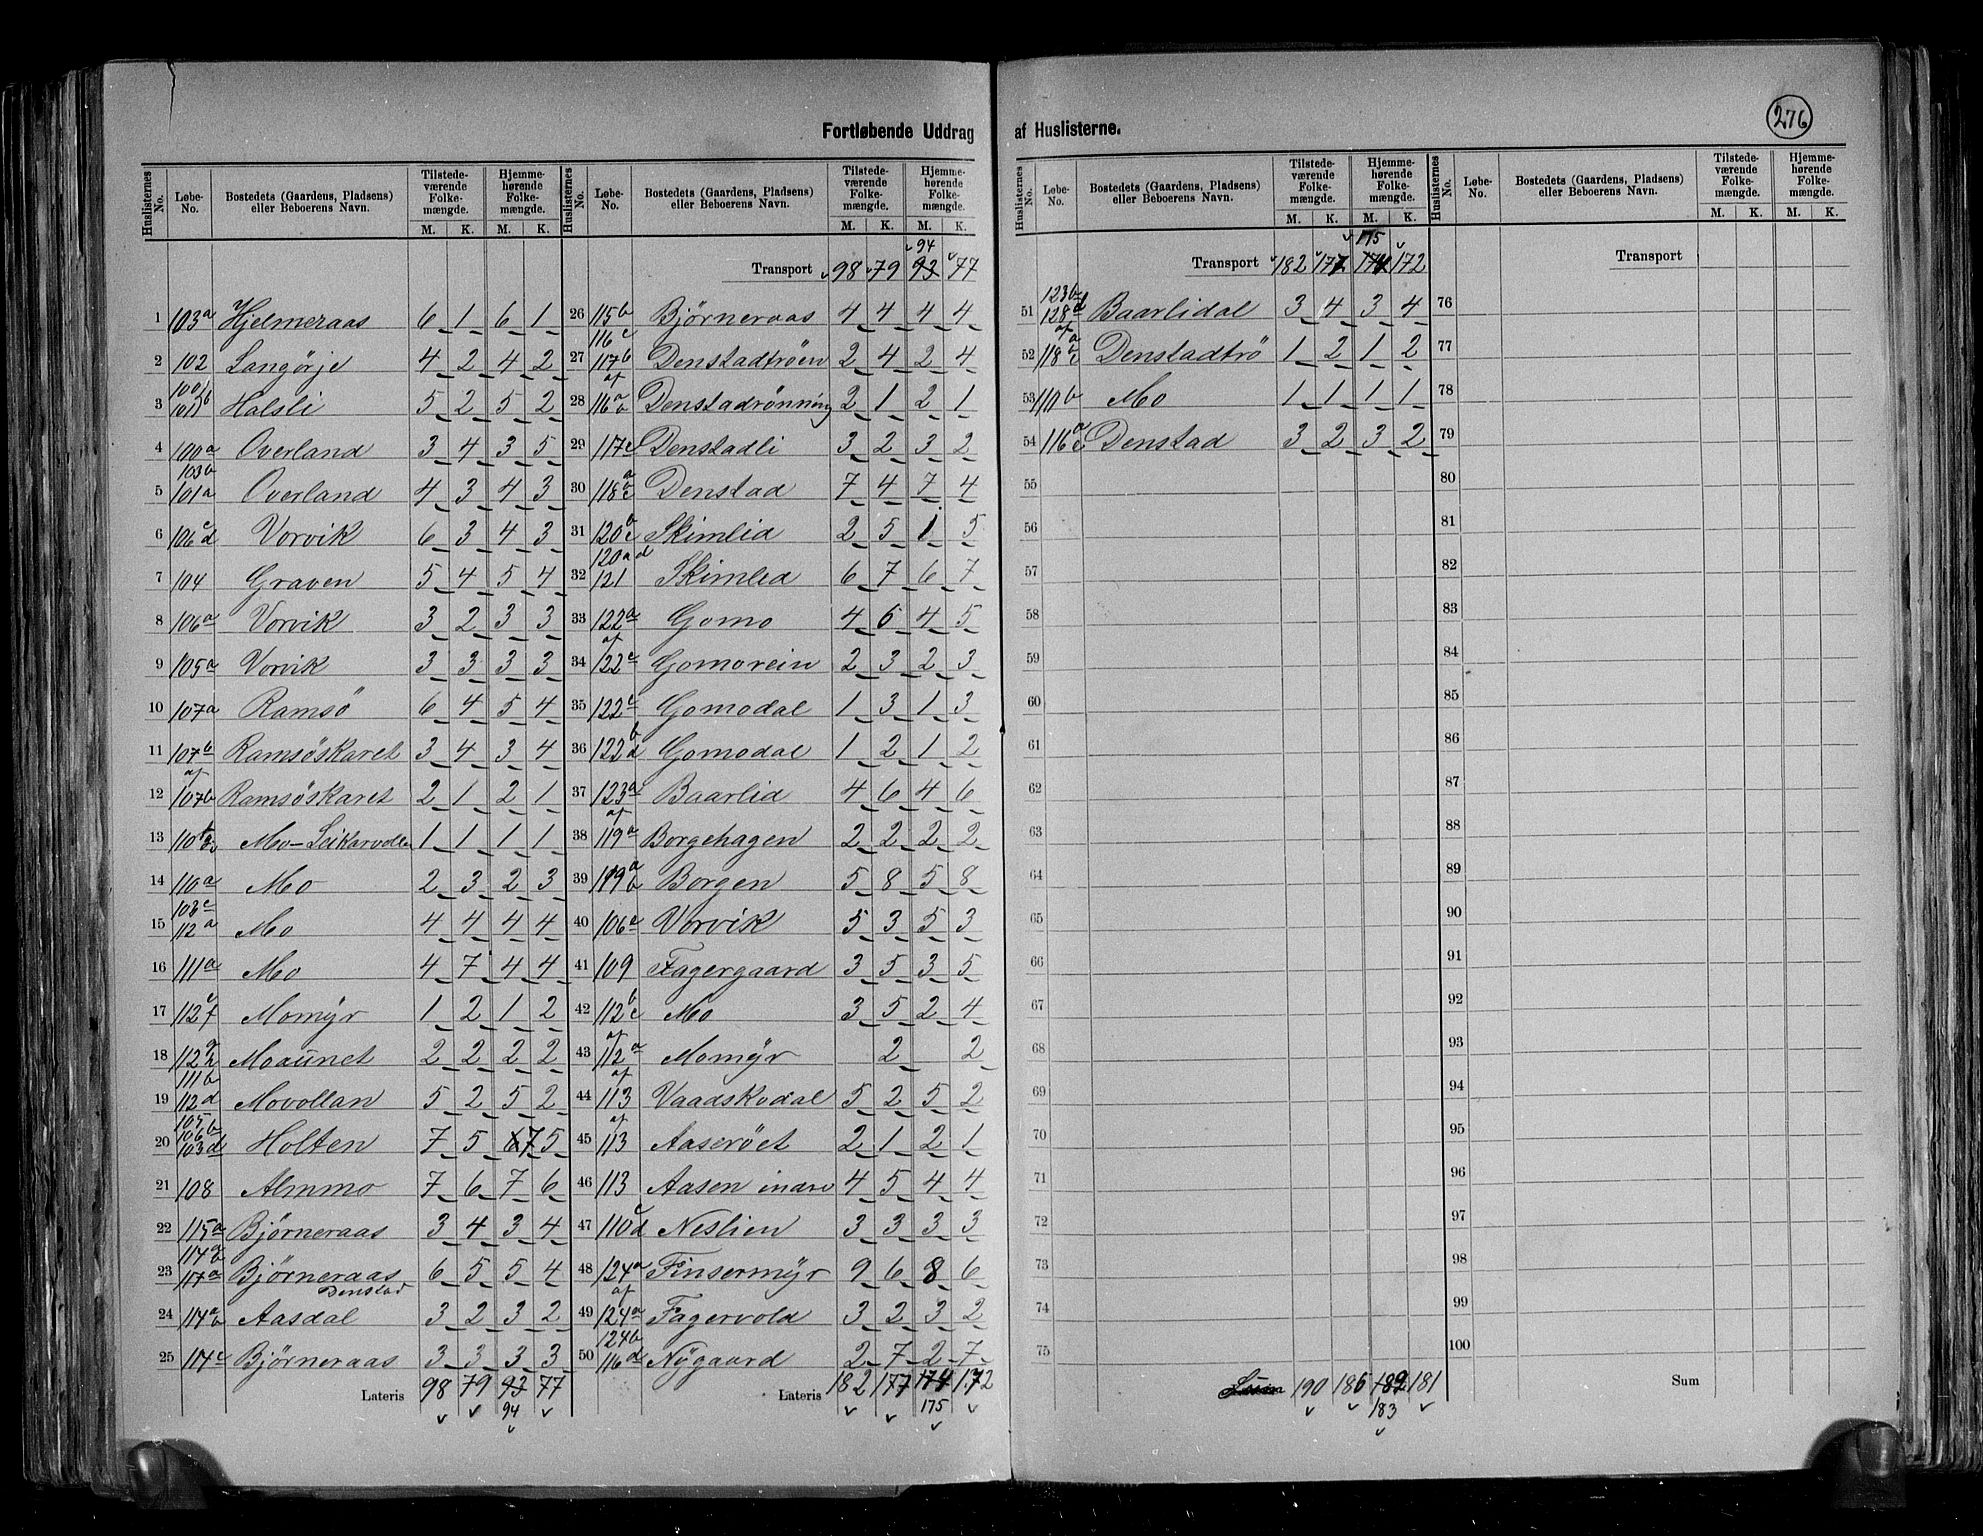 276
Fortløbende Uddrag af Huslisterne.
Huslisternes No. | Løbe-No. | Bostedets (Gaardens, Pladsens) eller Beboerens Navn. | Tilstedeværende Folkemængde. M. K. | Hjemmehørende Folkemængde. M. K.
1 103a Hjelmeraas 6 1 6 1
2 102 Langørje 4 2 4 2
3 100b 101b Halsli 5 2 5 2
4 100a Overland 3 4 3 5
5 103b 101a Overland 4 3 4 3
6 106c d Vorvik 6 3 4 3
7 104 Graven 5 4 5 4
8 106a Vorvik 3 2 3 3
9 105a Vorvik 3 3 3 3
10 107a Ramsö 6 4 5 4
11 107b Ramsöskaret 3 4 3 4
12 af 107b Ramsöskaret 2 1 2 1
13 110 Mo-Leikarvollen 1 1 1 1
14 110a Mo 2 3 2 3
15 103c 112a Mo 4 4 4 4
16 111a Mo 4 7 4 4
17 112c f Momyr 1 2 1 2
18 112g h Moaunet 2 2 2 2
19 111b 112d Movollan 5 2 5 2
20 105b 106 103d Holten 7 5 6 7 5
21 108 Almmo 7 6 7 6
22 115a Bjørneraas 3 4 3 4
23 114b 117a Bjørneraas Denstad 6 5 5 4
24 114a b Aasdal 3 2 3 2
25 114c Bjørneraas 3 3 3 3
Lateris 98 79 93 77
94
Huslisternes No. | Løbe-No. | Bostedets (Gaardens, Pladsens) eller Beboerens Navn. | Tilstedeværende Folkemængde. M. K. | Hjemmehørende Folkemængde. M. K.
94
Transport 98 79 93 77
26 115b Bjørneraas 4 4 4 4
27 116c 117b Denstadtrøen 2 4 2 4
28 af 116a b Denstadrønning 2 1 2 1
29 117c Denstadli 3 2 3 2
30 118a c Denstad 7 4 7 4
31 120b c Skimlid 2 5 1 5
32 120a d 121 Skimlid 6 7 6 7
33 122a Gomo 4 6 4 5
34 af 122c Gomorein 2 3 2 3
35 122c Gomodal 1 3 1 3
36 122b d Gomodal 1 2 1 2
37 123a Baarlid 4 6 4 6
38 af 119a Borgehagen 2 2 2 2
39 119a b Borgen 5 8 5 8
40 106e Vorvik 5 3 5 3
41 109 Fagergaard 3 5 3 5
42 112b c Mo 3 5 2 4
43 af 112a Momyr 2 2
44 af 113 Vaadskodal 5 2 5 2
45 af 113 Aaserøet 2 1 2 1
46 113 Aasen indre 4 5 4 4
47 110c d Neslien 3 3 3 3
48 124a Finsermyr 9 6 8 6
49 af 124a Fagervold 3 2 3 2
50 124b 116d Nygaard 2 7 2 7
Lateris 182 177 174 172
175
Huslisternes No. | Løbe-No. | Bostedets (Gaardens, Pladsens) eller Beboerens Navn. | Tilstedeværende Folkemængde. M. K. | Hjemmehørende Folkemængde. M. K.
175
Transport 182 177 174 172
51 123b 128d Baarlidal 3 4 3 4
52 af 118a c Denstadtrö 1 2 1 2
53 110b Mo 1 1 1 1
54 116a c Denstad 3 2 3 2
55
56
57
58
59
60
61
62
63
64
65
66
67
68
69
70
71
72
73
74
75
Sum 190 186 182 181
183
Huslisternes No. | Løbe-No. | Bostedets (Gaardens, Pladsens) eller Beboerens Navn. | Tilstedeværende Folkemængde. M. K. | Hjemmehørende Folkemængde. M. K.
Transport
76
77
78
79
80
81
82
83
84
85
86
87
88
89
90
91
92
93
94
95
96
97
98
99
100
Sum